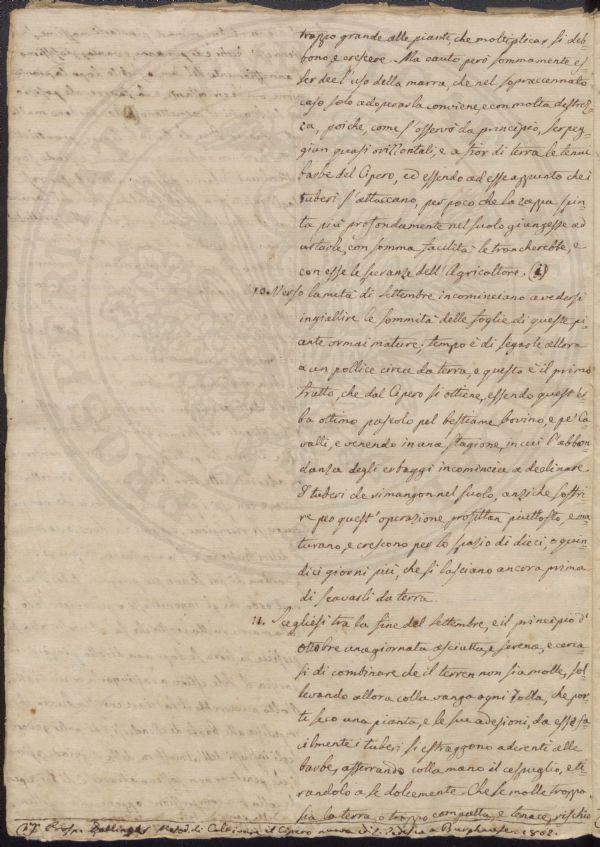 troppo grande alle piante, che moltiplicar si deb-
bono, e crescere. Ma cauto però sommamente es-
ser dee l'uso della marra, che nel sopraccennato
caso solo adoperarla conviene, e con molta destrez-
za, poiche, come s'osservò da principio, serpeg-
gian quasi orizzontali, e a fior di terra le tenui
barbe del Cipero, ed essendo ad esse appunto che i
tuberi s'attaccano, per poco che la zappa spin-
ta più profondamente nel suolo giungesse ad
urtarle, con somma facilità le troncherebbe, e
con esse le speranze dell'Agricoltore. (1)
10. Verso la metà di Settembre incominciano a vedersi
ingiallire le sommità delle foglie di queste pi-
ante ormai mature; tempo è di segarle allora
a un pollice circa da terra, e questo è il primo
frutto, che dal Cipero si ottiene, essendo quest'er-
ba ottimo pascolo pel bestiame bovino, e pe' Ca-
valli, e venendo in una stagione, in cui l'abbon-
danza degli erbaggi incomincia a declinare.
I tuberi che rimangon nel suolo, anzi che soffri-
re per quest'operazione, profittan piuttosto, e ma-
turano, e crescono per lo spazio di dieci, o quin-
dici giorni più, che si lasciano ancora prima
di scavarli da terra.
11. Scegliesi tra la fine del Settembre, e il principio d'
ottobre una giornata asciutta, e serena, e cerca-
si di combinare che il terren non sia molle, sol-
levando allora colla vanga ogni zolla, che por-
te seco una pianta, e le sue adesioni, da essa fa-
cilmente i tuberi si estraggono aderenti alle
barbe, afferrando colla mano il cespuglio, e ti-
randolo a se dolcemente. Che se molle troppo
sia la terra, o troppo compatta, e tenace, rischio
(1) Prosp. Metod. di Coltivare il Cipero a Burghausen 1802.